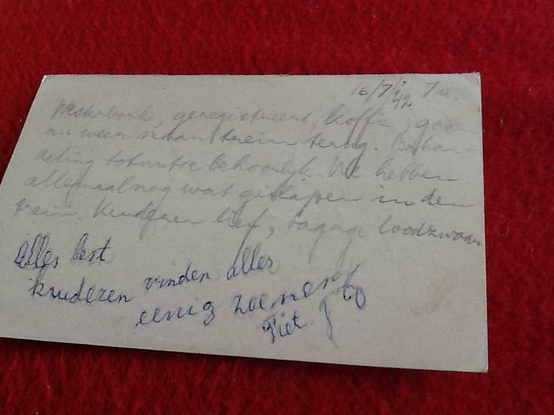 16/7/'42 7u.
Westerbork, geregistreerd, koffie, gaan
nu weer naar trein terug. Behan-
deling totnutoe behoorlijk. We hebben
allemaal nog wat geslapen in den
trein. Kinderen lief, bagage loodzwaar
Alles best
kinderen vinden alles
eenig zoenen
Piet